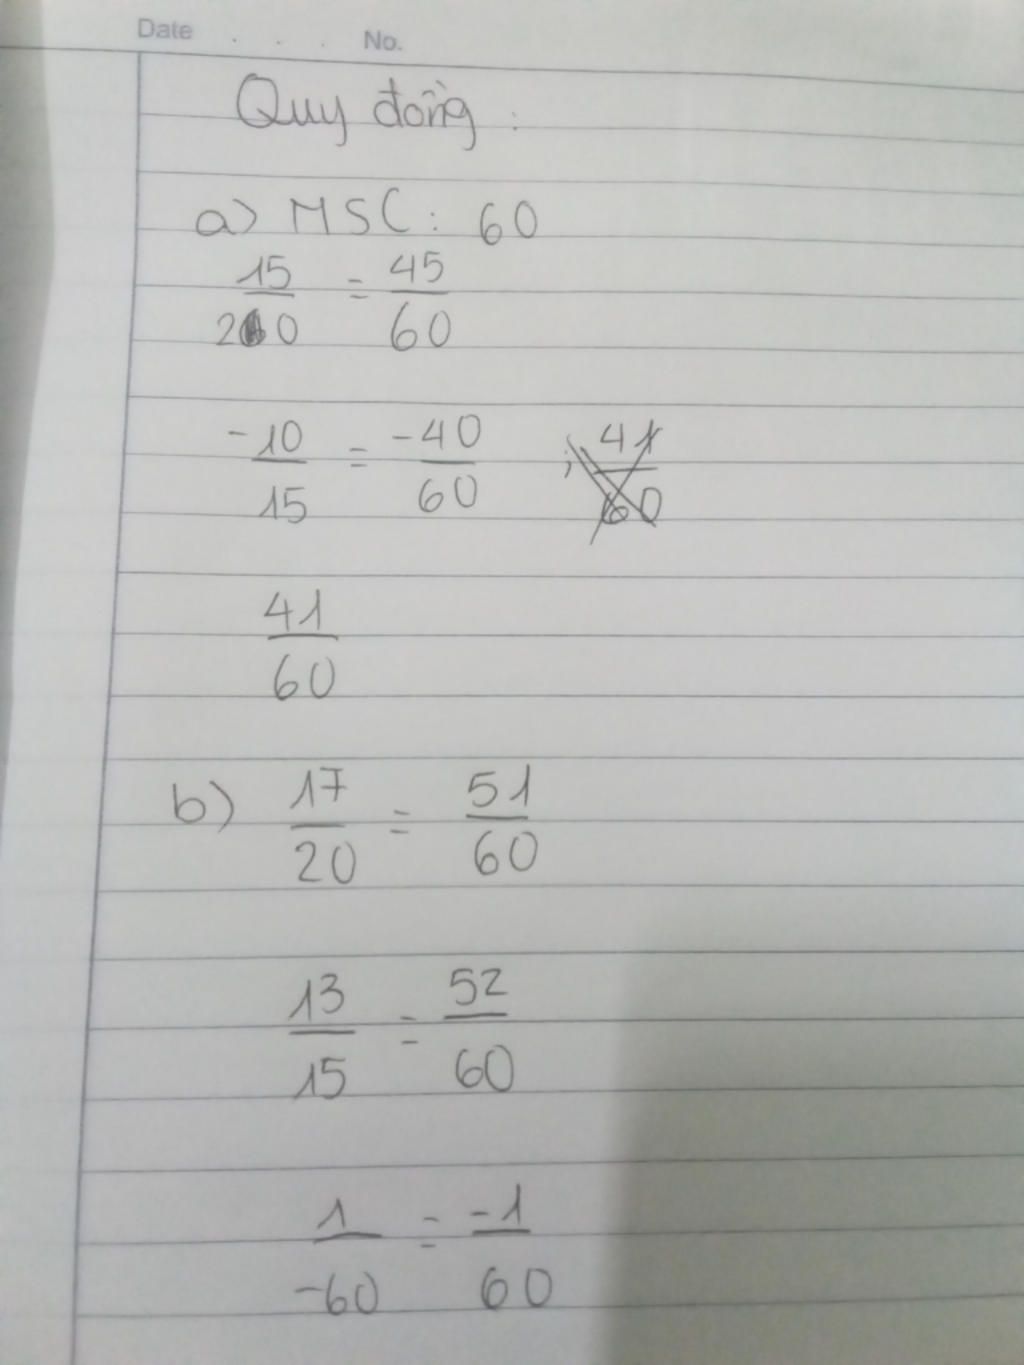 Date . . . No.
Quy đồng :
a) MSC: 60
15/20 = 45/60
-10/15 = -40/60 ; 41/60
41/60
b) 17/20 = 51/60
13/15 = 52/60
1/-60 = -1/60